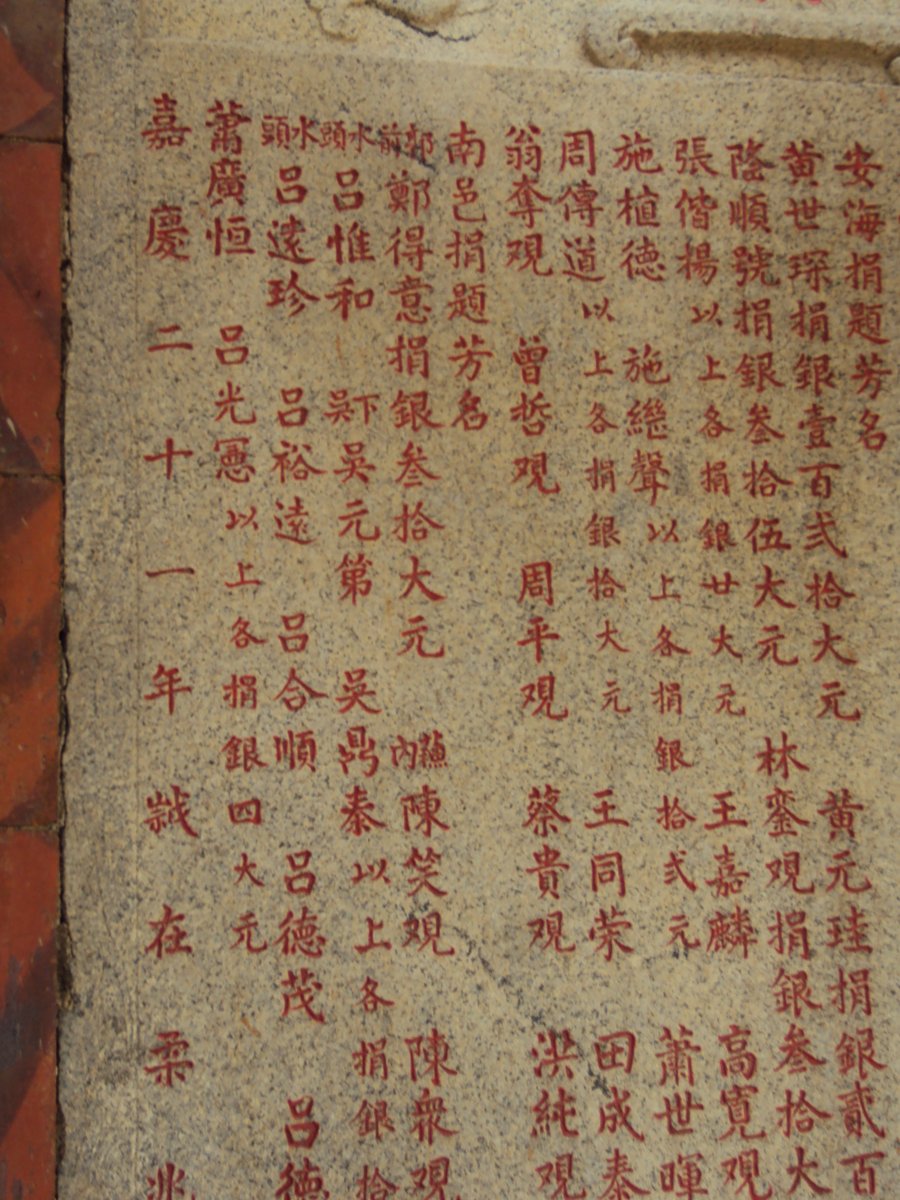 安海捐題芳名
黄世琛捐銀壹百弍拾大元 黄元珪捐銀貳百
蔭順號捐銀叁拾伍大元 林鑾观捐銀叁拾大
張偕揚以上各捐銀廿大元 王嘉麟 高寛观
施植德 施繼聲以上各捐銀拾弍元 蕭世暉
周傳道以上各捐銀拾大元 王同荣 田成泰
翁奪观 曾哲观 周平观 蔡貴观 洪純观
南邑捐題芳名
郭前鄭得意捐銀叁拾大元 内陳笑观 陳衆观
水頭吕惟和 吳下吳元第 吳鼎泰以上各捐銀拾
水頭吕遠珍 吕裕遠 吕合順 吕德茂 吕德
蕭廣恒 吕光憲以上各捐銀四大元
嘉慶二十一年歲在柔兆